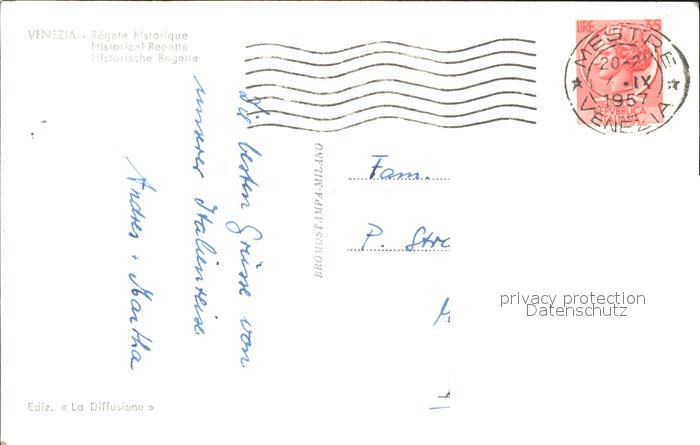 VENEZIA - Régate historique
Historical Regatta
Historische Regatte
LIRE 35
MESTRE
20-2
-IX
1957
VENEZIA
REPVBBLICA
ITALIANA
die besten Grüsse von
unserer Italienreise
Andres + Martha
BROMOSTAMPA-MILANO
Fam.
P. Stre
privacy protection
Datenschutz
Ediz. « La Diffusione »